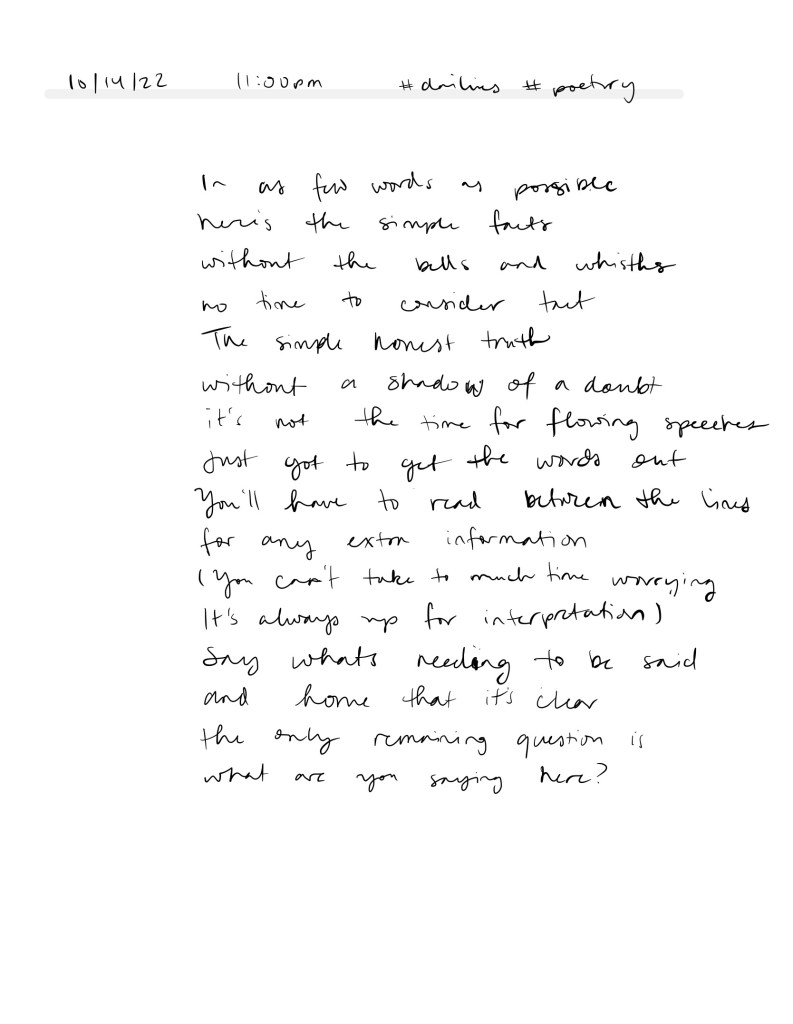 10/14/22 11:00pm #dailies #poetry
In as few words as possible
here's the simple facts
without the bells and whistles
no time to consider tact
The simple honest truth
without a shadow of a doubt
it's not the time for flowing speeches
Just got to get the words out
You'll have to read between the lines
for any extra information
(You can't take to much time worrying
It's always up for interpretation)
Say whats needing to be said
and home that it's clear
the only remaining question is
what are you saying here?